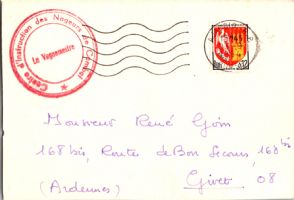 Centre d'Instruction des Nageurs de Combat
Le Vaguemestre
Monsieur René Goin
168 bis, Routes de Bon Secours, 168 bis
(Ardennes) Givet 08